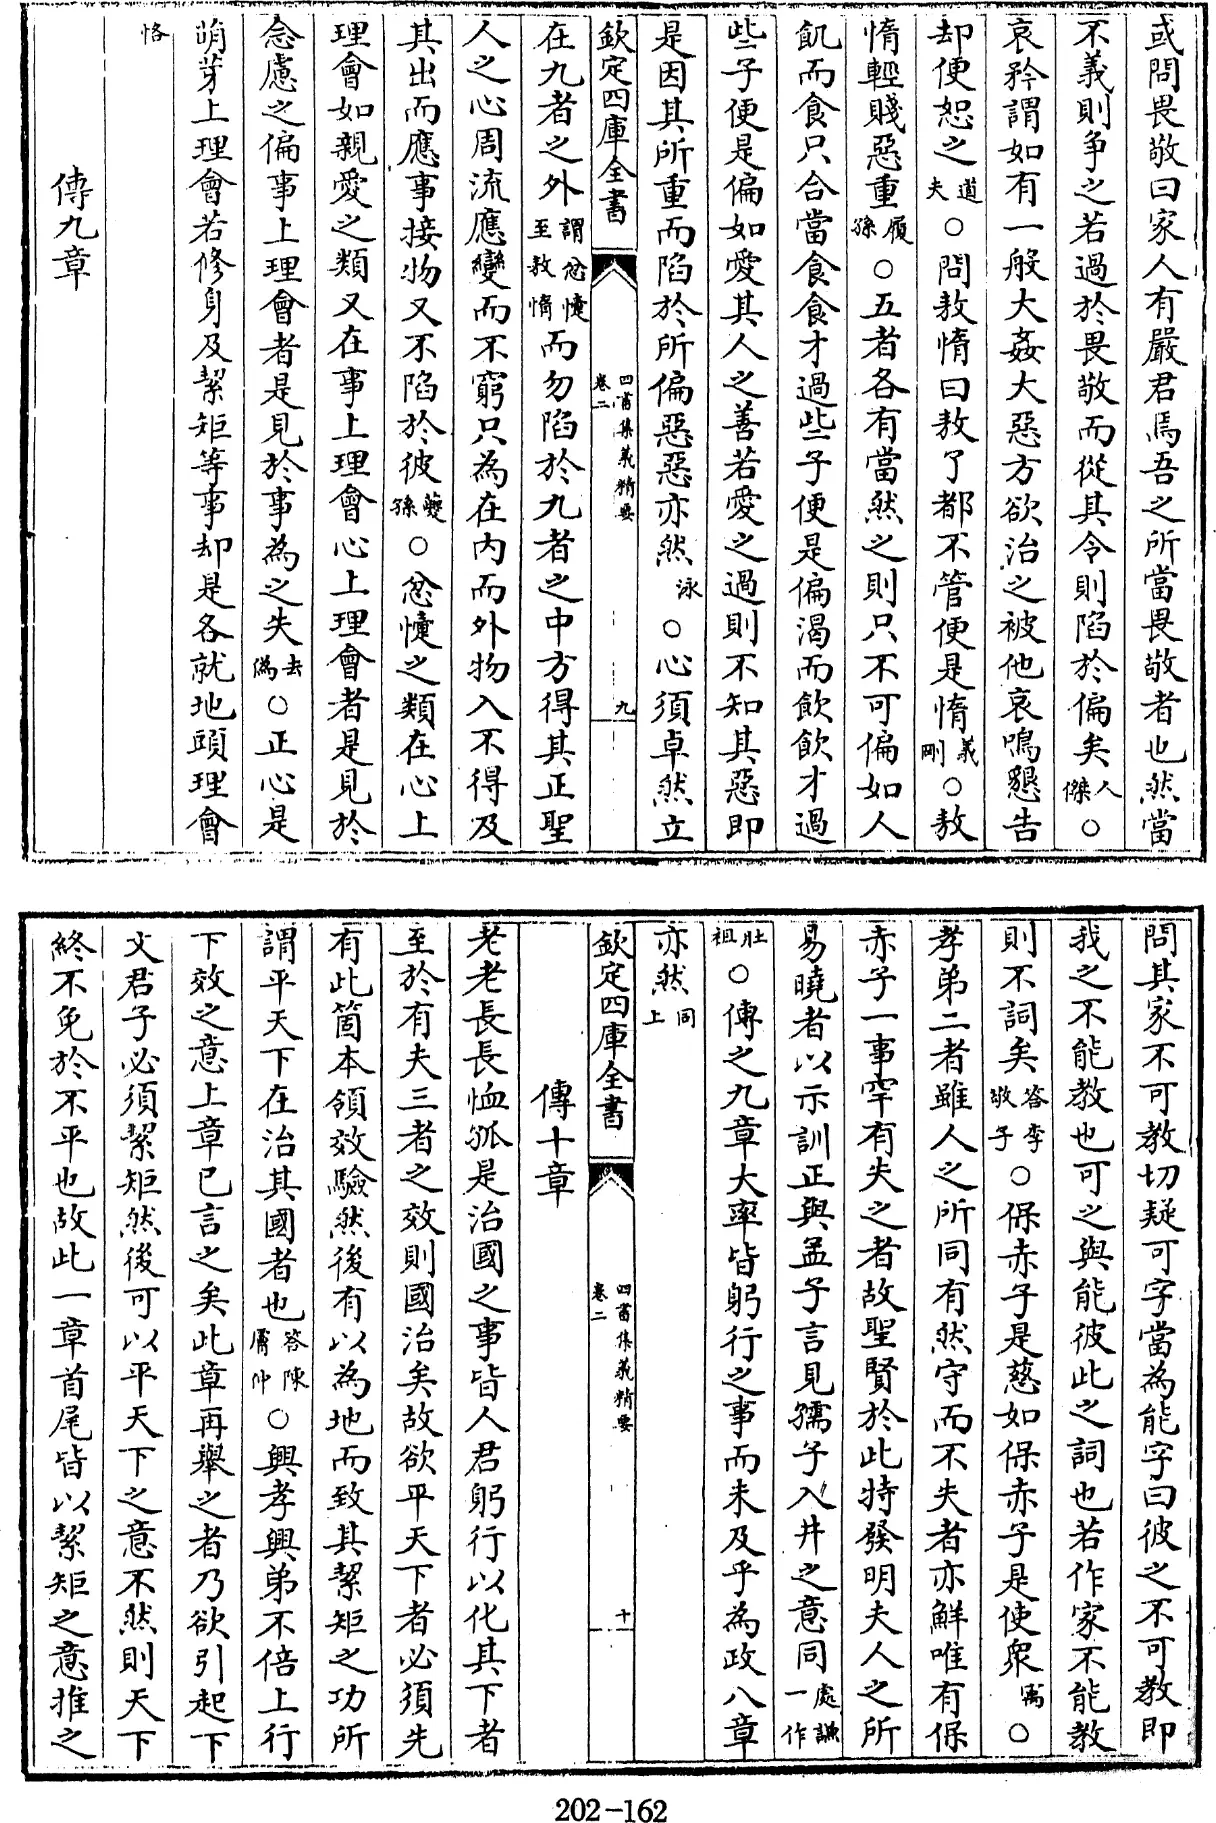 或問畏敬曰家人有嚴君焉吾之所當畏敬者也然當
不義則争之若過於畏敬而從其令則陷於偏矣人傑○
哀矜謂如有一般大姦大惡方欲治之被他哀鳴懇告
却便恕之道夫○問敖惰曰敖了都不管便是惰義剛○敖
惰輕賤惡重履孫○五者各有當然之則只不可偏如人
飢而食只合當食食才過些子便是偏渴而飲飲才過
些子便是偏如愛其人之善若愛之過則不知其惡即
是因其所重而陷於所偏惡惡亦然泳○心須卓然立
欽定四庫全書 四書集義精要 卷二 九
在九者之外謂忿懥至敖惰而勿陷於九者之中方得其正聖
人之心周流應變而不窮只為在内而外物入不得及
其出而應事接物又不陷於彼夔孫○忿懥之類在心上
理會如親愛之類又在事上理會心上理會者是見於
念慮之偏事上理會者是見於事為之失去偽○正心是
萌芽上理會若修身及絜矩等事却是各就地頭理會
恪
傳九章
問其家不可教切疑可字當為能字曰彼之不可教即
我之不能教也可之與能彼此之詞也若作家不能教
則不詞矣答李敬子○保赤子是慈如保赤子是使衆㝢○
孝弟二者雖人之所同有然守而不失者亦鮮唯有保
赤子一事罕有失之者故聖賢於此特發明夫人之所
易曉者以示訓正與孟子言見孺子入井之意同處謙一作
壯祖○傳之九章大率皆躬行之事而未及乎為政八章
亦然同上
欽定四庫全書 四書集義精要 卷二 十
傳十章
老老長長恤孤是治國之事皆人君躬行以化其下者
至於有夫三者之效則國治矣故欲平天下者必須先
有此箇本領效驗然後有以為地而致其絜矩之功所
謂平天下在治其國者也答陳膚仲○興孝興弟不倍上行
下效之意上章已言之矣此章再舉之者乃欲引起下
文君子必須絜矩然後可以平天下之意不然則天下
終不免於不平也故此一章首尾皆以絜矩之意推之
202-162